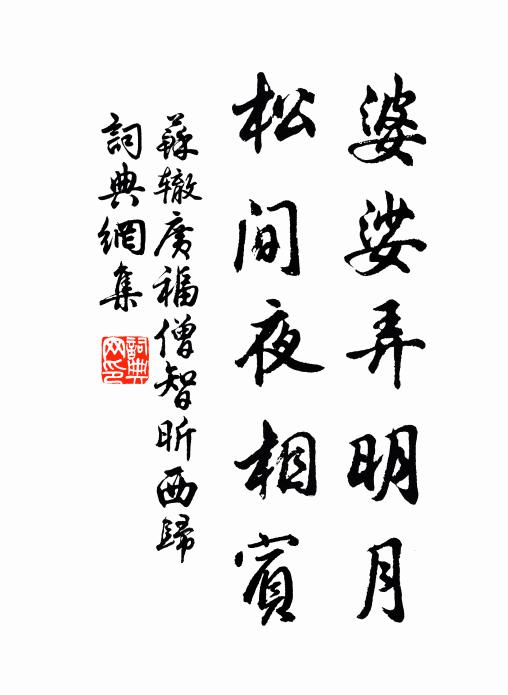 婆娑弄明月
松間夜相賓
蘇辙廣福僧智昕西歸
詞典網集
詞典網印